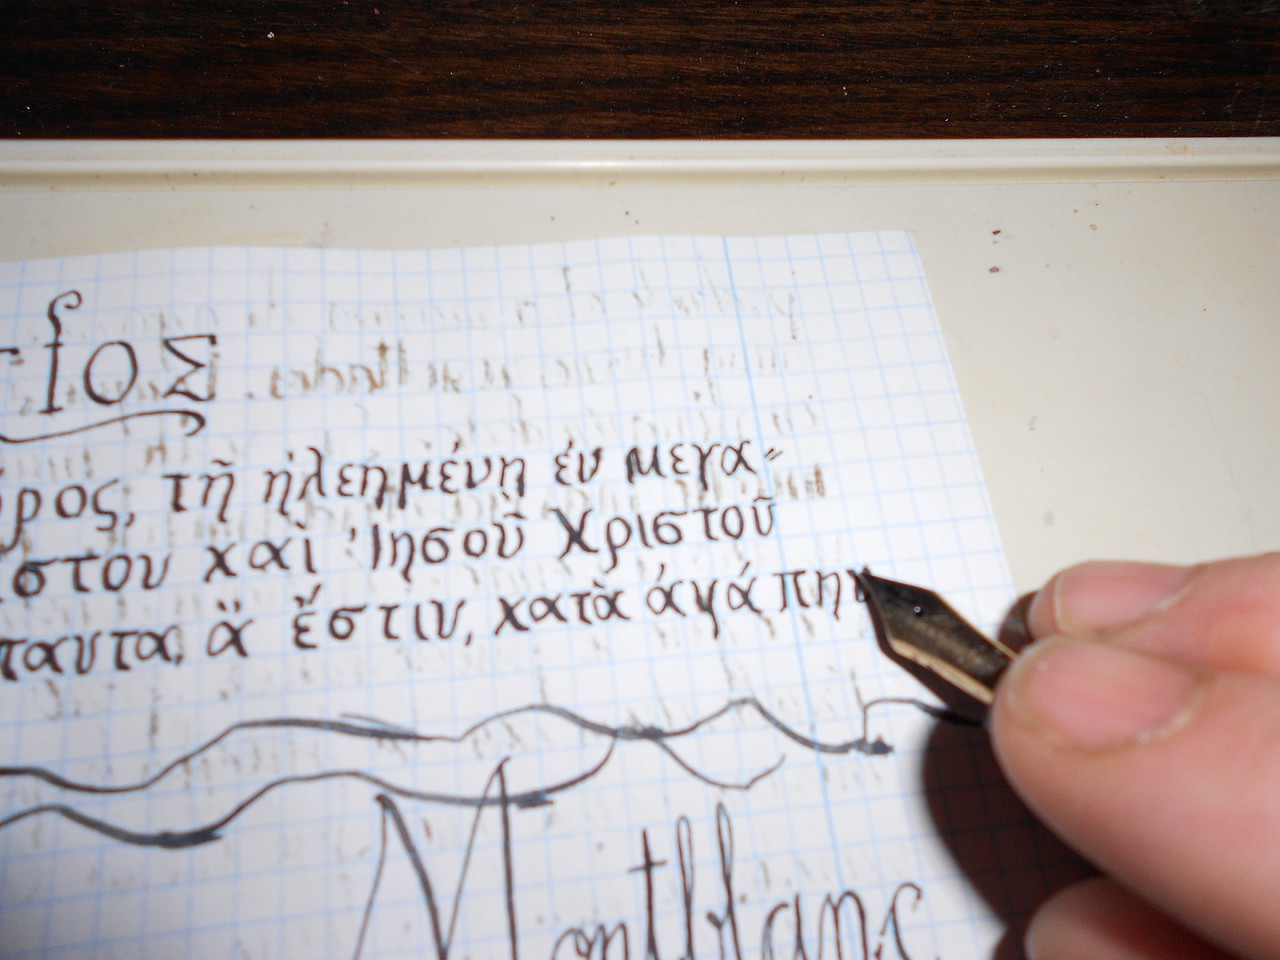 ΙΟΣ
ρος, τῇ ἠλεημένῃ ἐν μεγα=
ίστου καὶ Ἰησοῦ Χριστοῦ
ταυτα, ἅ ἔστιν, κατὰ ἀγάπην
Montblanc